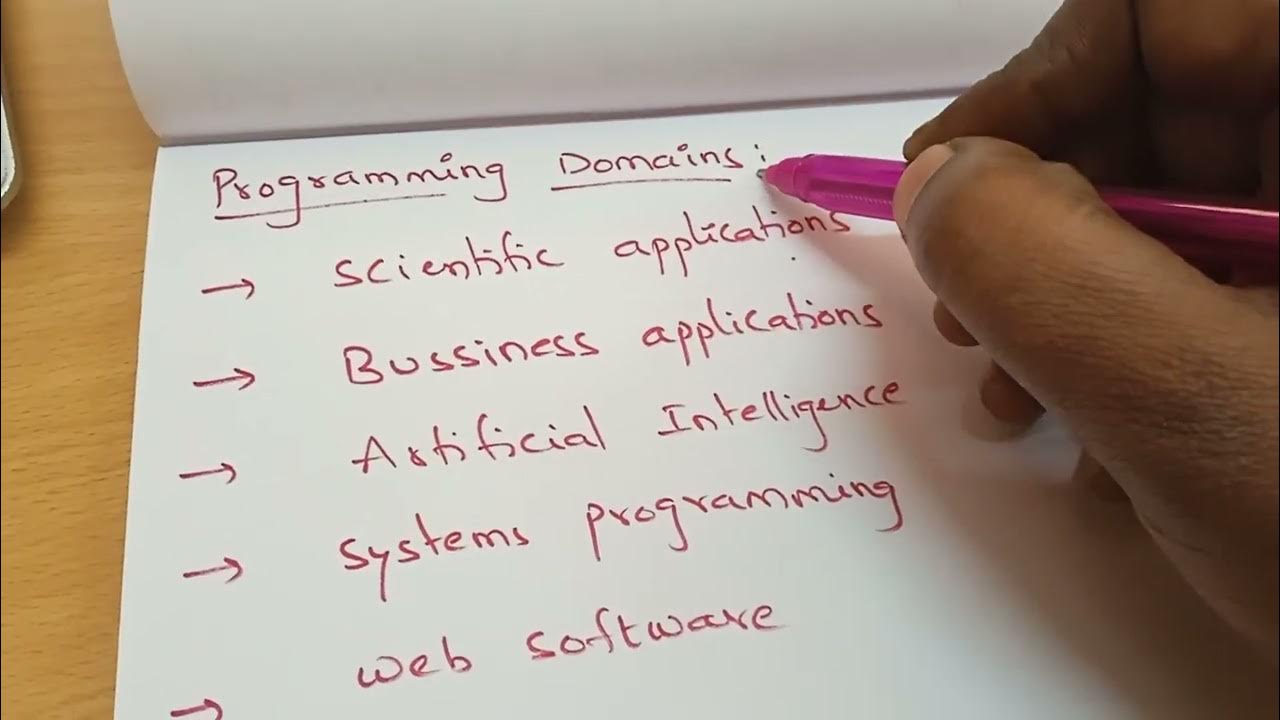 Programming Domains:
→ Scientific applications
→ Bussiness applications
→ Artificial Intelligence
→ Systems programming
→ Web software